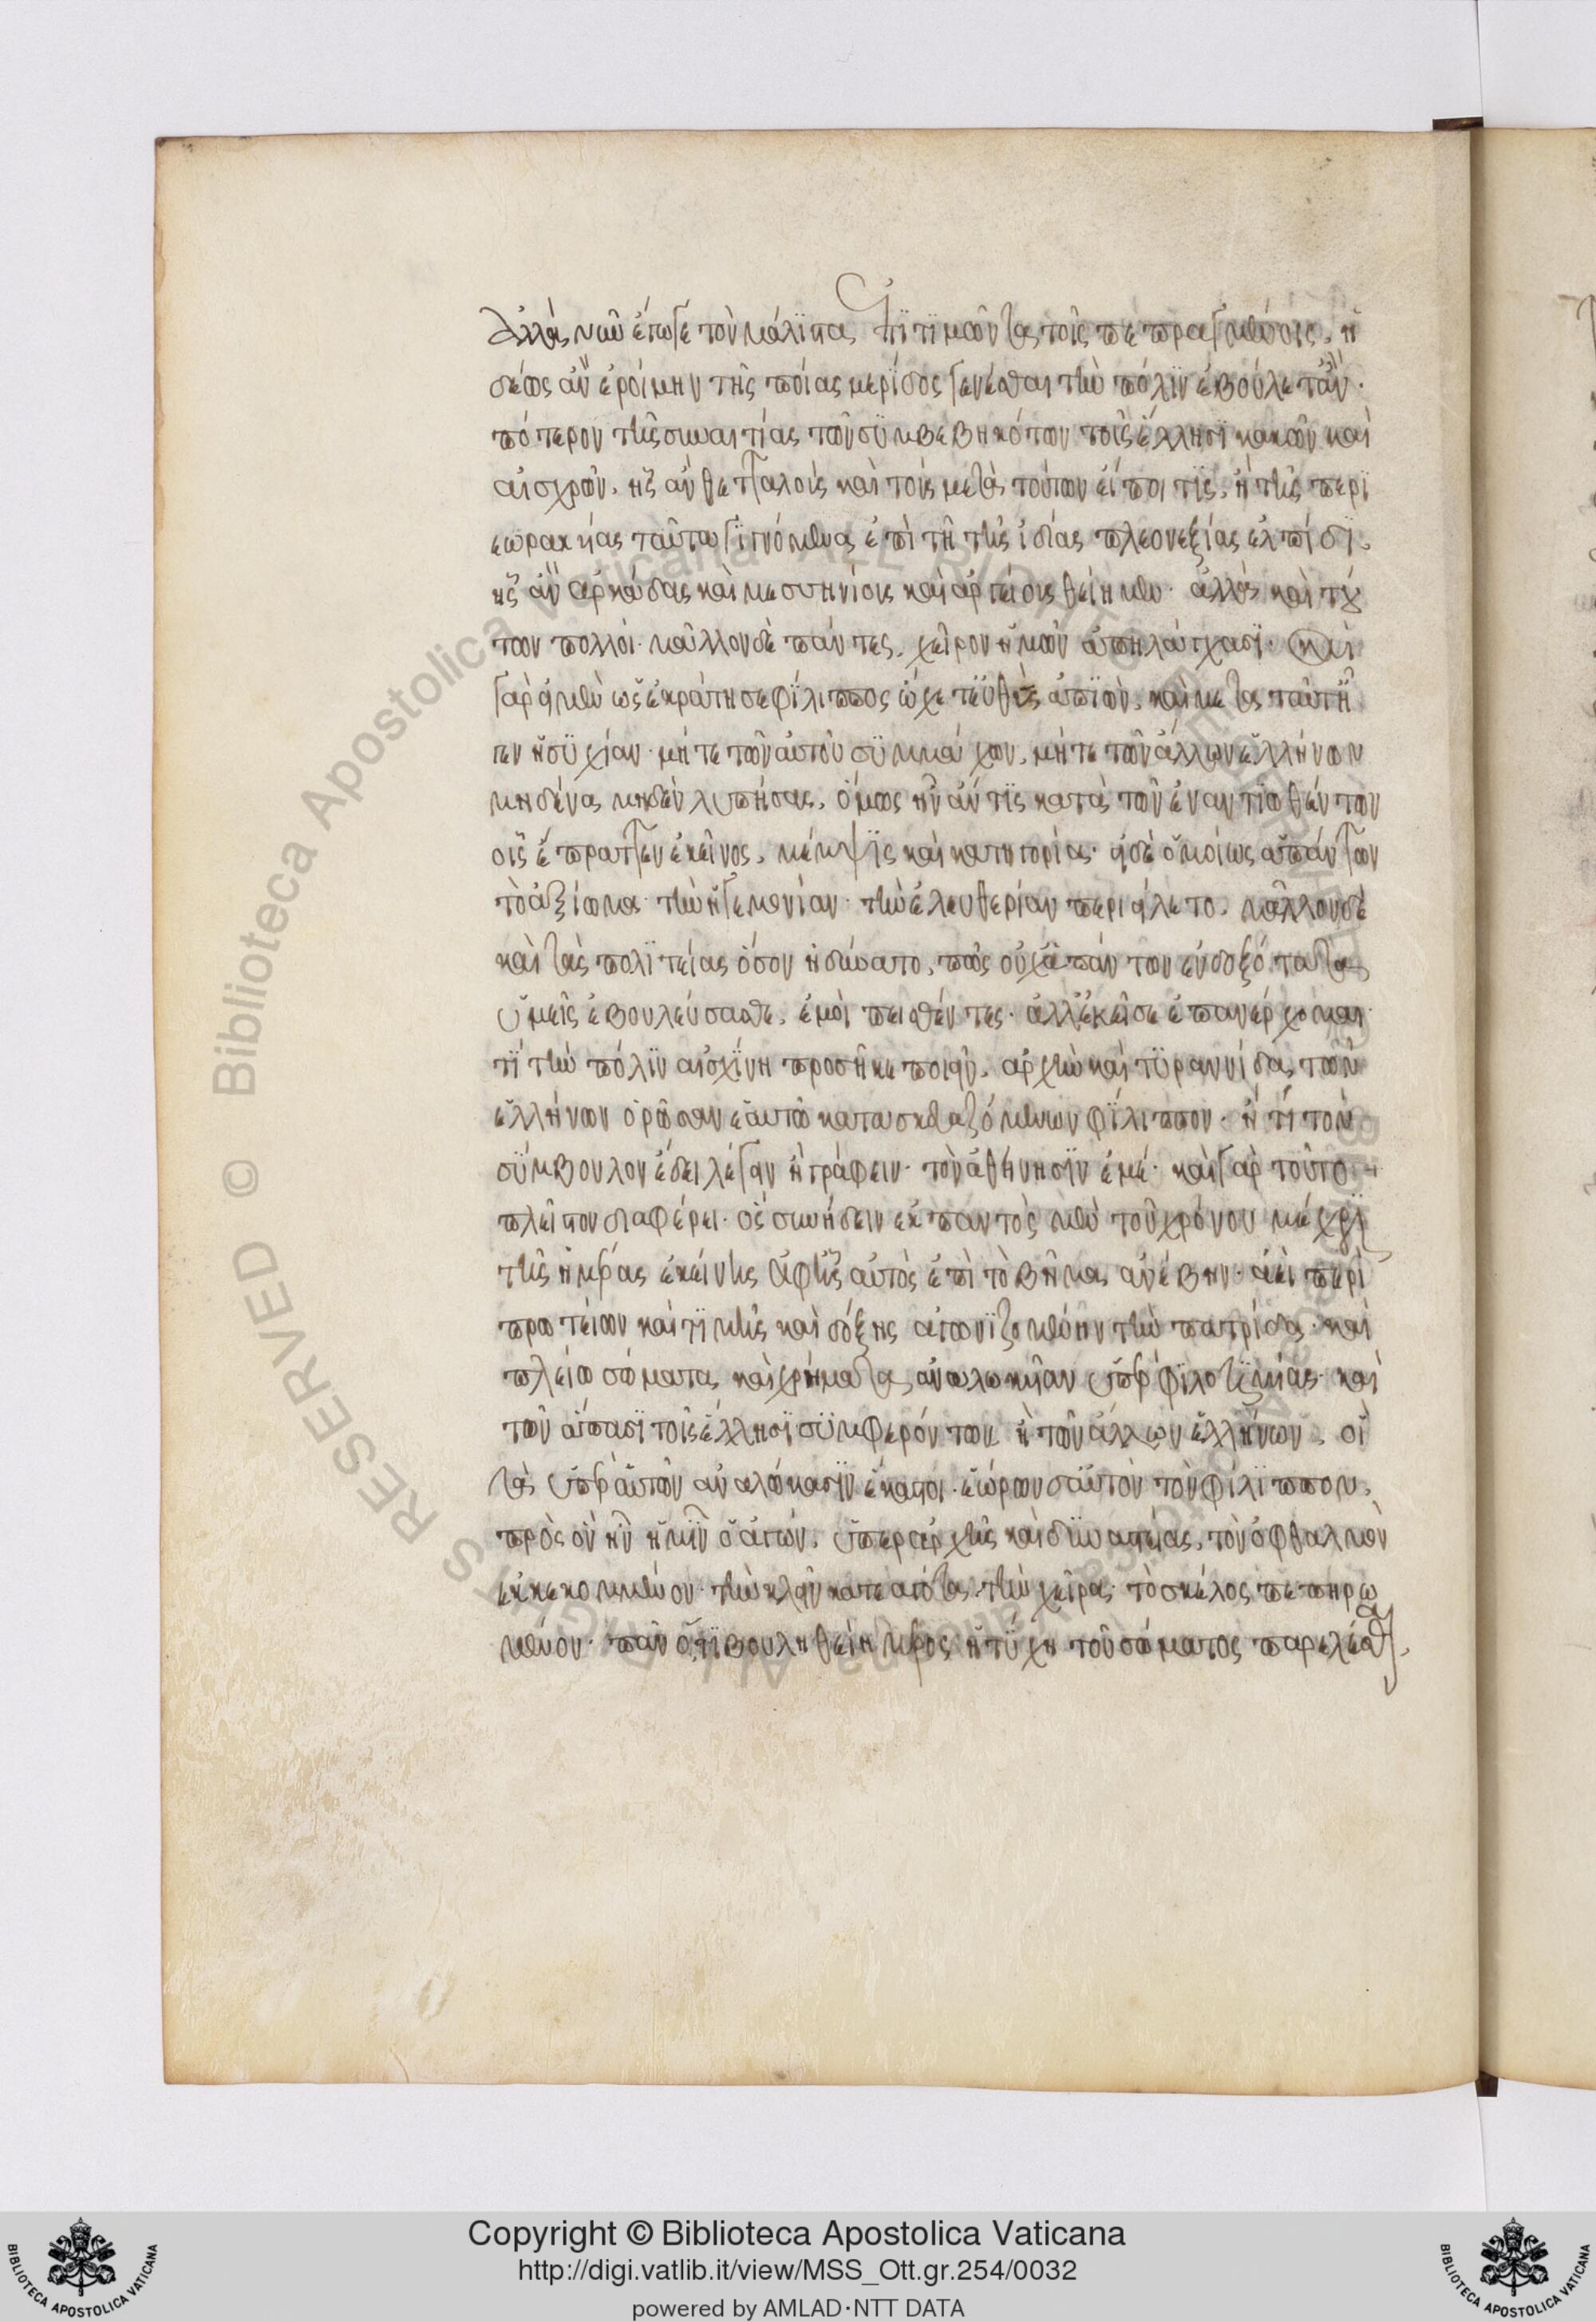 ἀλλὰ νῦν ἔγωγε τὸν μάλιστα ἐπιτιμῶντα τοῖς πεπραγμένοις, ἡ
δέως ἂν ἐροίμην τῆς ποίας μερίδος γενέσθαι τὴν πόλιν ἐβούλετ' ἄν·
πότερον τῆς συναιτίας τῶν συμβεβηκότων τοῖς ἕλλησι κακῶν καὶ
αἰσχρῶν, ἧς ἂν θετταλοὺς καὶ τοὺς μετὰ τούτων εἴποι τις, ἢ τῆς περι
εωρακυίας ταῦτα γιγνόμενα ἐπὶ τῇ τῆς ἰδίας πλεονεξίας ἐλπίδι,
ἧς ἂν ἀρκάδας καὶ μεσσηνίους καὶ ἀργείους θείημεν· ἀλλὰ καὶ τού
των πολλοί· μᾶλλον δὲ πάντες, χεῖρον ἡμῶν ἀπηλάχασι· καὶ
γὰρ εἰ μὲν ὡς ἐκράτησε φίλιππος ᾤχετ' εὐθὺς ἀπιὼν, καὶ μετὰ ταῦτ' ἦ
γεν ἡσυχίαν· μήτε τῶν αὑτοῦ συμμάχων, μήτε τῶν ἄλλων ἑλλήνων
μηδένα μηδὲν λυπήσας, ὅμως ἦν ἄν τις κατὰ τῶν ἐναντιωθέντων
οἷς ἔπραττεν ἐκεῖνος, μέμψις καὶ κατηγορία· εἰ δὲ ὁμοίως ἁπάντων
τὸ ἀξίωμα· τὴν ἡγεμονίαν· τὴν ἐλευθερίαν περιείλετο, μᾶλλον δὲ
καὶ τὰς πολιτείας ὅσων ἠδύνατο, πῶς οὐχ ἁπάντων ἐνδοξότατα
ὑμεῖς ἐβουλεύσασθε, ἐμοὶ πεισθέντες· ἀλλ' ἐκεῖσε ἐπανέρχομαι·
τί τὴν πόλιν αἰσχίνη προσῆκε ποιεῖν, ἀρχὴν καὶ τυραννίδα τῶν
ἑλλήνων ὁρῶσαν ἑαυτῷ κατασκευαζόμενον φίλιππον· ἢ τί τὸν
σύμβουλον ἔδει λέγειν ἢ γράφειν· τὸν ἀθήνησιν ἐμέ· καὶ γὰρ τοῦτο
πλεῖστον διαφέρει· ὃς συνῄδειν ἐκ παντὸς μὲν τοῦ χρόνου μέχρι
τῆς ἡμέρας ἐκείνης ἀφ' ἧς αὐτὸς ἐπὶ τὸ βῆμα ἀνέβην· ἀεὶ περὶ
πρωτείων καὶ τιμῆς καὶ δόξης ἀγωνιζομένην τὴν πατρίδα· καὶ
πλείω σώματα καὶ χρήματα ἀναλωκυῖαν ὑπὲρ φιλοτιμίας· καὶ
τῶν ἅπασι τοῖς ἕλλησι συμφερόντων ἢ τῶν ἄλλων ἑλλήνων, οἱ
τὰ ὑπὲρ αὑτῶν ἀναλώκασιν ἕκαστοι· ἑώρων δ' αὐτὸν τὸν φίλιππον,
πρὸς ὃν ἦν ἡμῖν ὁ ἀγών, ὑπὲρ ἀρχῆς καὶ δυναστείας, τὸν ὀφθαλμὸν
ἐκκεκομμένον· τὴν κλεῖν κατεαγότα· τὴν χεῖρα· τὸ σκέλος πεπηρω
μένον· πᾶν ὅ,τι βουληθείη μέρος ἡ τύχη τοῦ σώματος παρελέσθαι,
Copyright © Biblioteca Apostolica Vaticana
http://digi.vatlib.it/view/MSS_Ott.gr.254/0032
powered by AMLAD·NTT DATA